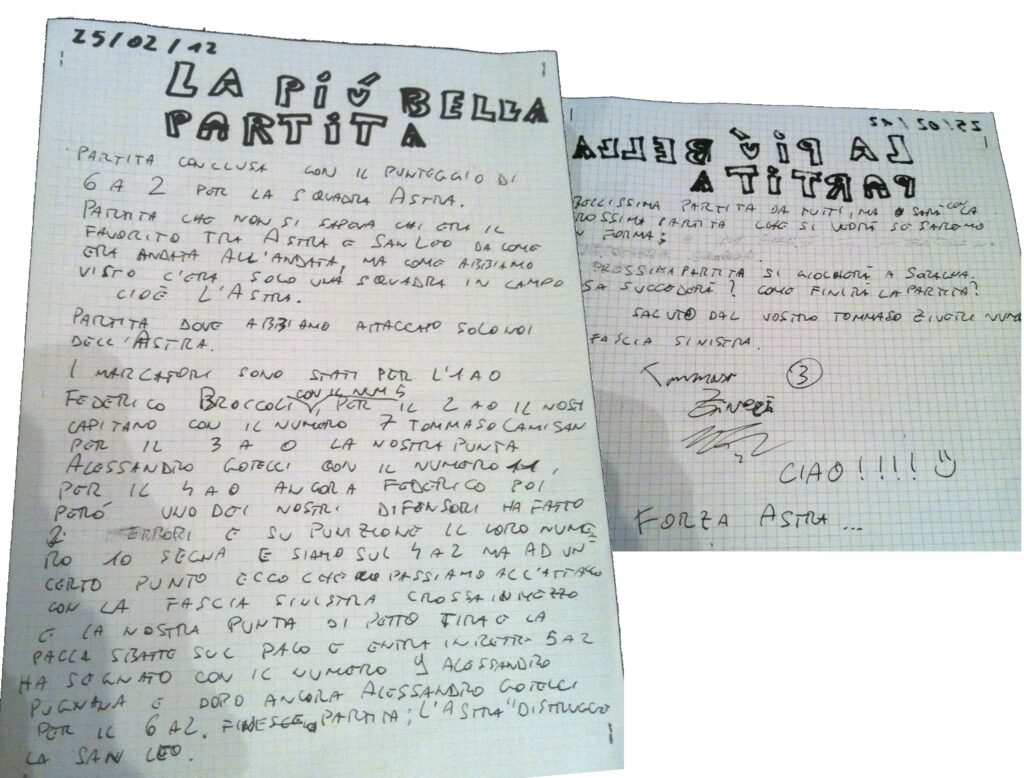 25/02/12
LA PIÚ BELLA
PARTITA
PARTITA CONCLUSA CON IL PUNTEGGIO DI
6 A 2 PER LA SQUADRA ASTRA.
PARTITA CHE NON SI SAPEVA CHI ERA IL
FAVORITO TRA ASTRA E SAN LEO DA COME
ERA ANDATA ALL'ANDATA, MA COME ABBIAMO
VISTO C'ERA SOLO UNA SQUADRA IN CAMPO
CIOÈ L'ASTRA.
PARTITA DOVE ABBIAMO ATTACCATO SOLO NOI
DELL'ASTRA.
I MARCATORI SONO STATI PER L'1 A 0
FEDERICO BROCCOLI CON IL NUM 5, PER IL 2 A 0 IL NOST
CAPITANO CON IL NUMERO 7 TOMMASO CAMISAN
PER IL 3 A 0 LA NOSTRA PUNTA
ALESSANDRO GOTELLI CON IL NUMERO 11,
PER IL 4 A 0 ANCORA FEDERICO POI
PERÓ UNO DEI NOSTRI DIFENSORI HA FATTO
2 ERRORI E SU PUNIZIONE IL LORO NUME-
RO 10 SEGNA E SIAMO SUL 4 A 2 MA AD UN
CERTO PUNTO ECCO CHE PASSIAMO ALL'ATTACO
CON LA FASCIA SINISTRA CROSSA IN MEZZO
E LA NOSTRA PUNTA DI PETTO TIRA E LA
PALLA SBATTE SUL PALO E ENTRA IN RETE 5 A 2
HA SEGNATO CON IL NUMERO 9 ALESSANDRO
PUGNANA E DOPO ANCORA ALESSANDRO GOTELLI
PER IL 6 A 2. FINESCE PARTITA; L'ASTRA "DISTRUGGE
LA SAN LEO.
25/02/12
LA PIÙ BELLA
PARTITA
BELLISSIMA PARTITA DA TUTTI, MA SARÀ CON LA
ROSSIMA PARTITA CHE SI VEDRÀ SE SAREMO
N FORMA;
PROSSIMA PARTITA SI GIOCHERÀ A SORAGNA.
SA SUCCEDERÀ? COME FINIRÀ LA PARTITA?
SALUTO DAL VOSTRO TOMMASO ZIVERI NUM
FASCIA SINISTRA.
Tommaso 3
Ziveri
CIAO!!!!
FORZA ASTRA...